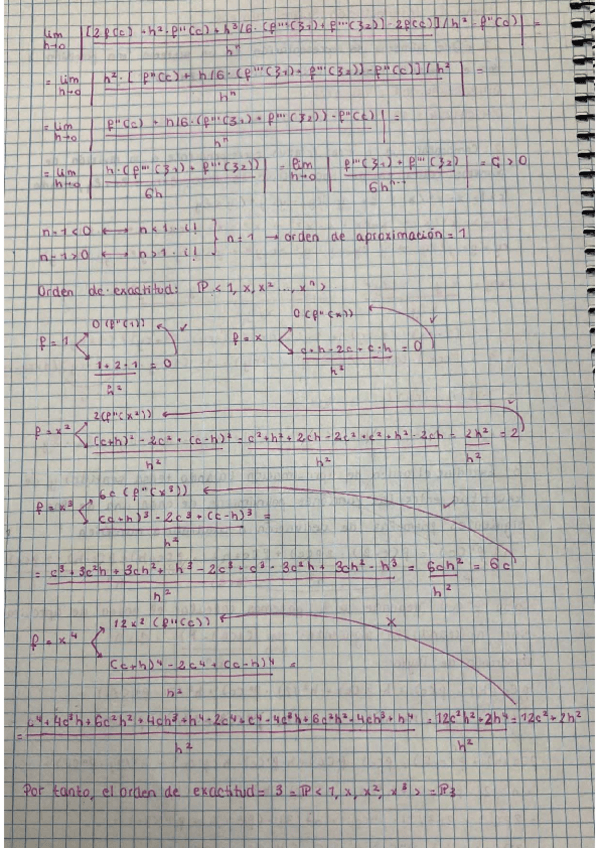 lim h→0 | [2f(c) + h²·f''(c) + h³/6·(f'''(ξ1) + f'''(ξ2)) - 2f(c)]/h² - f''(c) / hⁿ | =
= lim h→0 | h²·[f''(c) + h/6·(f'''(ξ1) + f'''(ξ2)) - f''(c)]/h² / hⁿ | =
= lim h→0 | f''(c) + h/6·(f'''(ξ1) + f'''(ξ2)) - f''(c) / hⁿ | =
= lim h→0 | h·(f'''(ξ1) + f'''(ξ2)) / 6h | = lim h→0 | f'''(ξ1) + f'''(ξ2) / 6hⁿ⁻¹ | = C > 0
n-1<0 ↔ n<1 ¡!
n-1>0 ↔ n>1 ¡! } n=1 → orden de aproximación = 1
Orden de exactitud: ℙ<1, x, x² ..., xⁿ>
f=1 < 0 (f''(1)) ✓
1+2-1 / h² = 0
f=x < 0 (f''(x)) ✓
c+h-2c+c-h / h² = 0
f=x² < 2 (f''(x²)) ✓
(c+h)² - 2c² + (c-h)² / h² = c²+h²+2ch-2c²+c²+h²-2ch / h² = 2h² / h² = 2
f=x³ < 6c (f''(x³)) ✓
(c+h)³ - 2c³ + (c-h)³ / h² =
= c³+3c²h+3ch²+h³-2c³+c³-3c²h+3ch²-h³ / h² = 6ch² / h² = 6c
f=x⁴ < 12x² (f''(c)) ×
(c+h)⁴ - 2c⁴ + (c-h)⁴ / h² =
= c⁴+4c³h+6c²h²+4ch³+h⁴-2c⁴+c⁴-4c³h+6c²h²-4ch³+h⁴ / h² = 12c²h²+2h⁴ / h² = 12c²+2h²
Por tanto, el orden de exactitud = 3 = ℙ<1, x, x², x³> = ℙ3